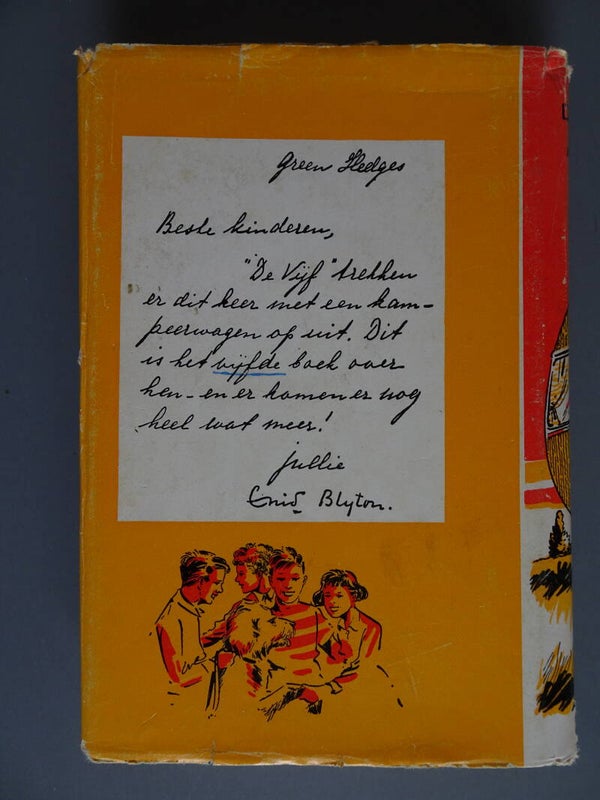 Green Hedges
Beste kinderen,
"De Vijf" trekken
er dit keer met een kam-
peerwagen op uit. Dit
is het vijfde boek over
hen - en er komen er nog
heel wat meer!
jullie
Enid Blyton.